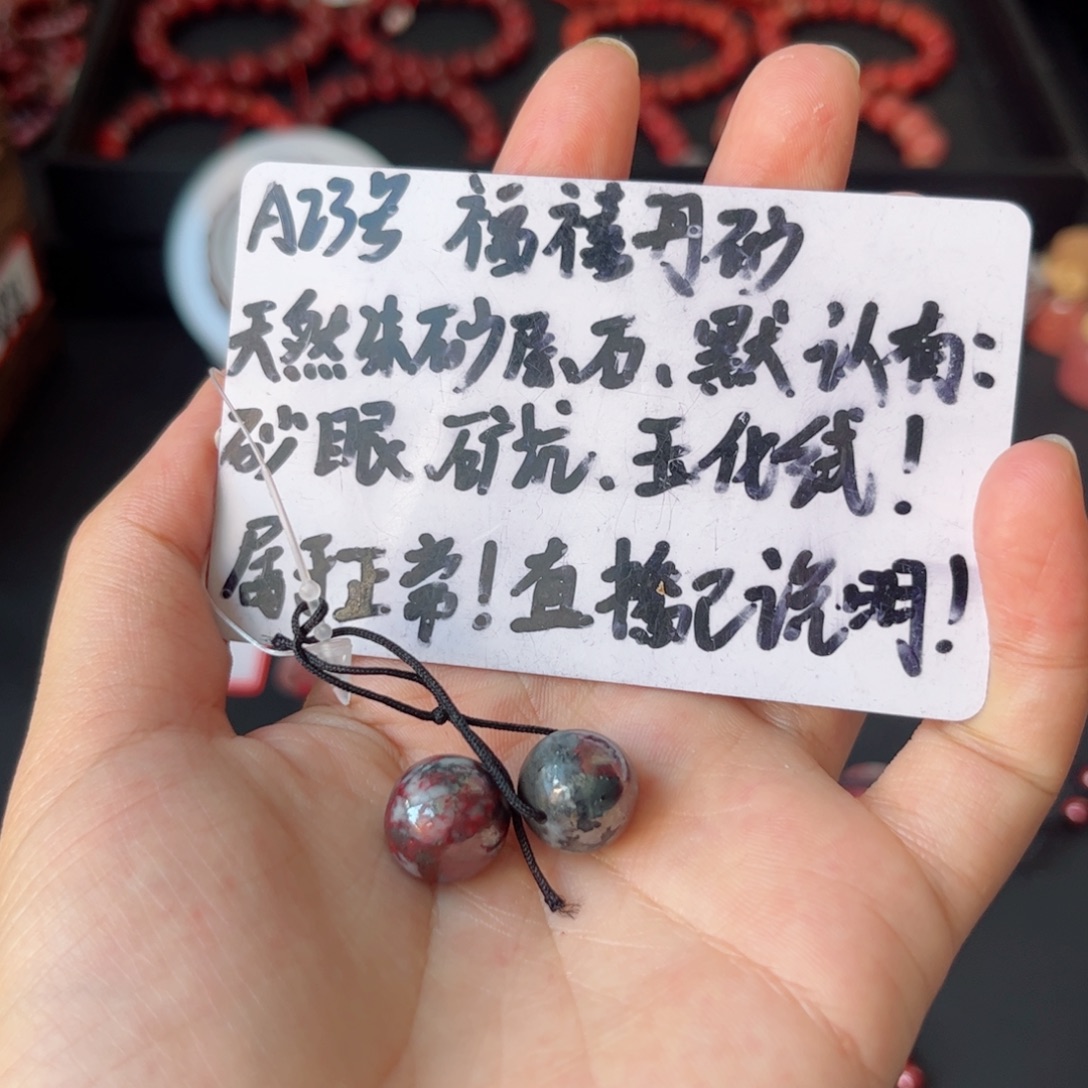 A23号 福禧丹砂
天然朱砂原石、默认有:
砂眼、矿坑、玉化线!
属于正常!直播已说明!